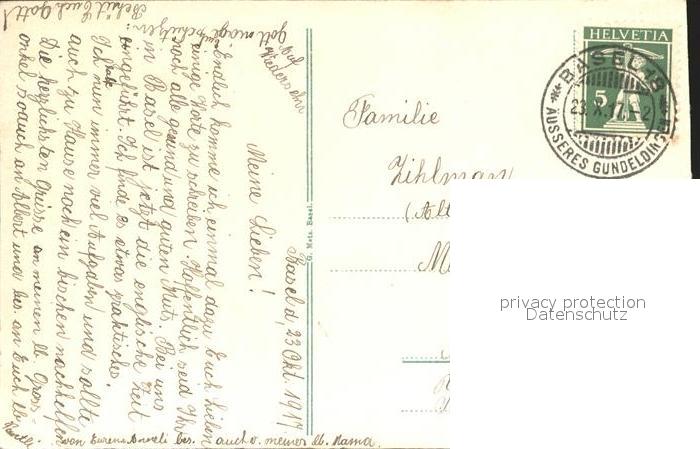 Basel d. 23 Okt. 1917
Meine Lieben!
Endlich komme ich einmal dazu Euch Lieben
einige Worte zu schreiben. Hoffentlich seid Ihr
noch alle gesund und guten Mut. Bei uns
in Basel ist jetzt die englische Zeit
eingeführt. Ich finde es etwas praktischer.
Ich habe nun immer viel Aufgaben und sollte
auch zu Hause noch ein bischen nachhelfen
Die herzlichsten Grüsse an meinen lb. Gross-
onkel so auch an Albert und bes. an Euch lb.
von Eurem bes. auch v. meiner lb. Mama.
Auf Wiedersehn
Gott möge Euch schützen.
Behüt Euch Gott!
G. Metz, Basel.
Familie
Zihlman
(Alt
M
HELVETIA
5
BASEL 18
23.X.17
ÄUSSERES GUNDELDINGEN
privacy protection
Datenschutz